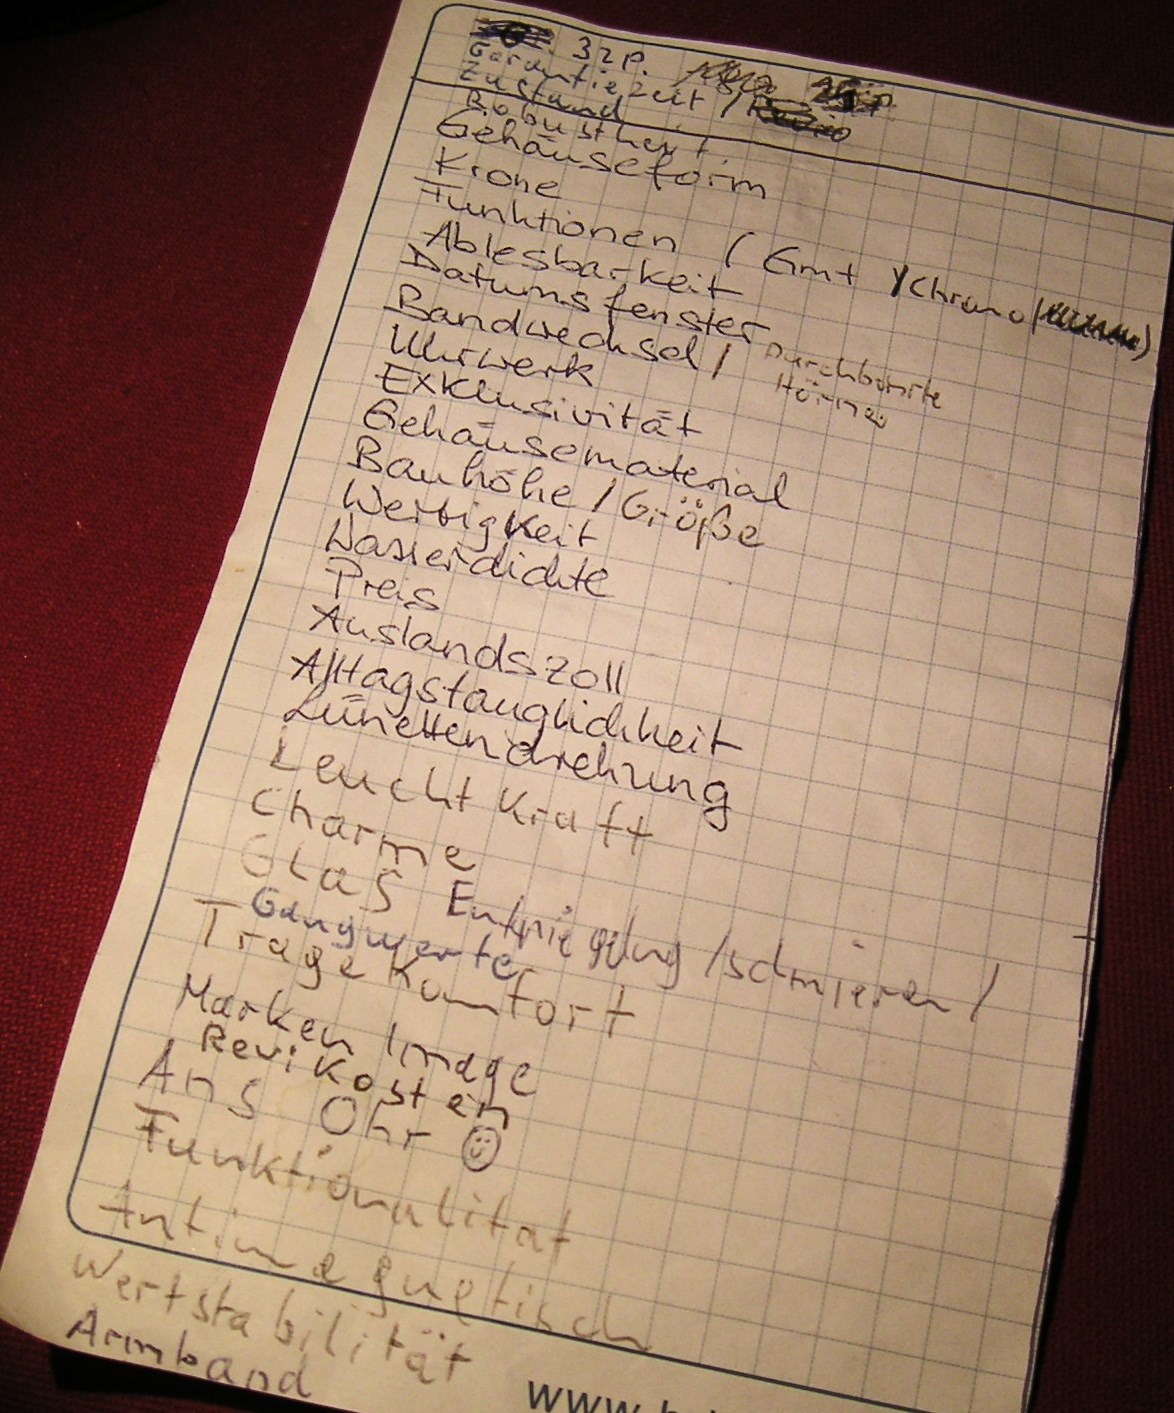 32P.
Garantiezeit /
Zustand
Robustheit
Gehäuseform
Krone
Funktionen / Gmt / Chrono / )
Ablesbarkeit
Datumsfenster
Bandwechsel / Durchbohrte
Hörner
Uhrwerk
Exklusivität
Gehäusematerial
Bauhöhe / Größe
Wertigkeit
Wasserdichte
Preis
Auslandszoll
Alltagstauglichkeit
Lünettendrehung
Leuchtkraft
Charme
Glas Entspiegelung / schmieren /
Gangwerte
Tragekomfort
Marken Image
Revi Kosten
Ans Ohr
Funktionalität
Antimagnetisch
Wertstabilität
Armband
www.